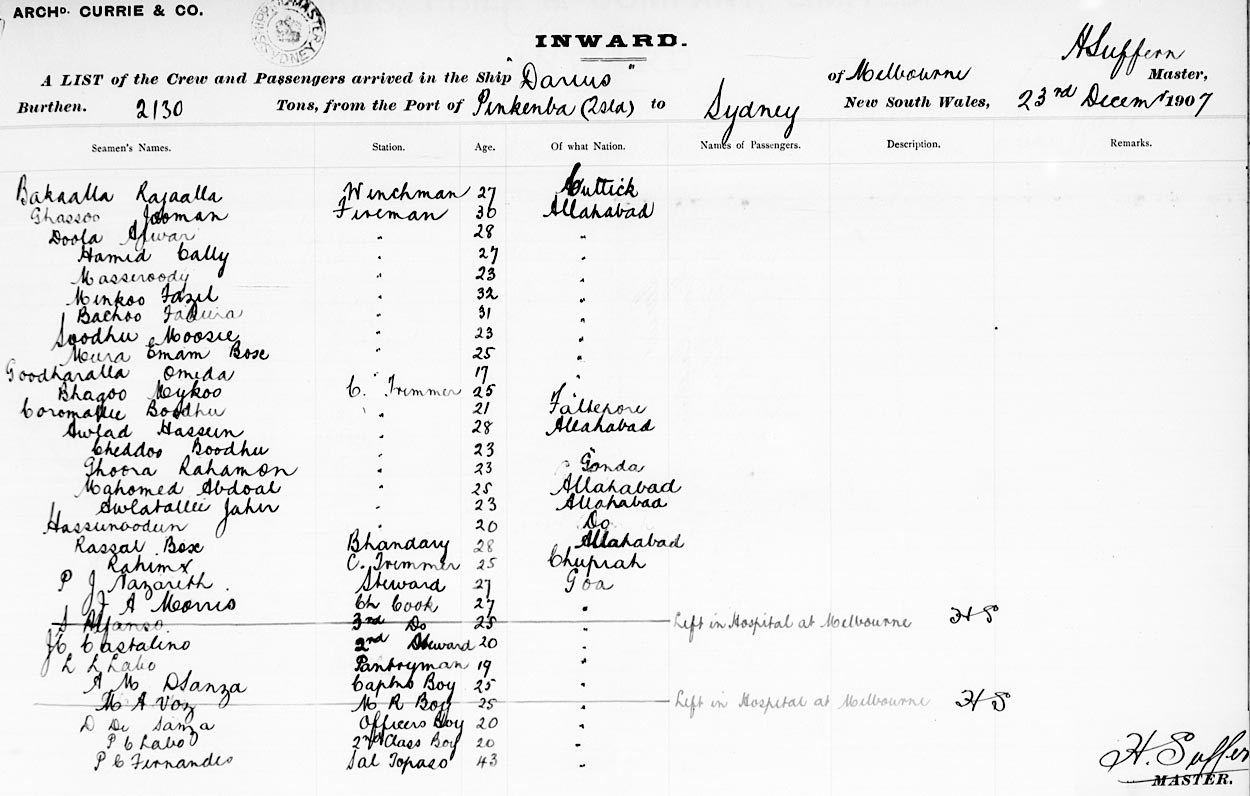 ARCHD. CURRIE & CO.
SHIPPING MASTER SYDNEY
INWARD.
H Suffern
A LIST of the Crew and Passengers arrived in the Ship "Darius" of Melbourne Master,
Burthen. 2130 Tons, from the Port of Pinkenba (Qsld) to Sydney New South Wales, 23rd Decemr 1907
Seamen's Names. Station. Age. Of what Nation. Names of Passengers. Description. Remarks.
Bakaalla Rajaalla Winchman 27 Cuttick
Ghassoo Jooman Fireman 36 Allahabad
Doola Ajwar " 28 "
Hamid Cally " 27 "
Masseroody " 23 "
Minkoo Fazil " 32 "
Bachoo " 31 "
Soodhu Moosie " 23 "
Meera Emam Box " 25 "
Goodharalla Omeda " 17 "
Bhagoo Mykoo C. Trimmer 25 "
Boodhu " 21 Fattepore
Awlad Hassein " 28 Allahabad
Cheddoo Boodhu " 23 "
Ghoora Rahamon " 23 Gonda
Mahomed Abdoal " 25 Allahabad
Awlatallee Jahir " 23 Allahabad
Hassunoodeen " 20 Do
Rassal Box Bhandary 28 Allahabad
Rahim x C. Trimmer 25 Chuprah
P J Nazareth Steward 27 Goa
J A Morris Ch Cook 27 "
S Alfanso 3rd Do 25 " Left in Hospital at Melbourne HS
J C Castalino 2nd Steward 20 "
L L Labo Pantryman 19 "
A M DSanza Captns Boy 25 "
A Voz M R Boy 25 " Left in Hospital at Melbourne HS
D De Sanza Officers Boy 20 "
P C Labo 2nd Class Boy 20 "
P C Fernandes Sal Topaso 43 "
H. Suffern
MASTER.